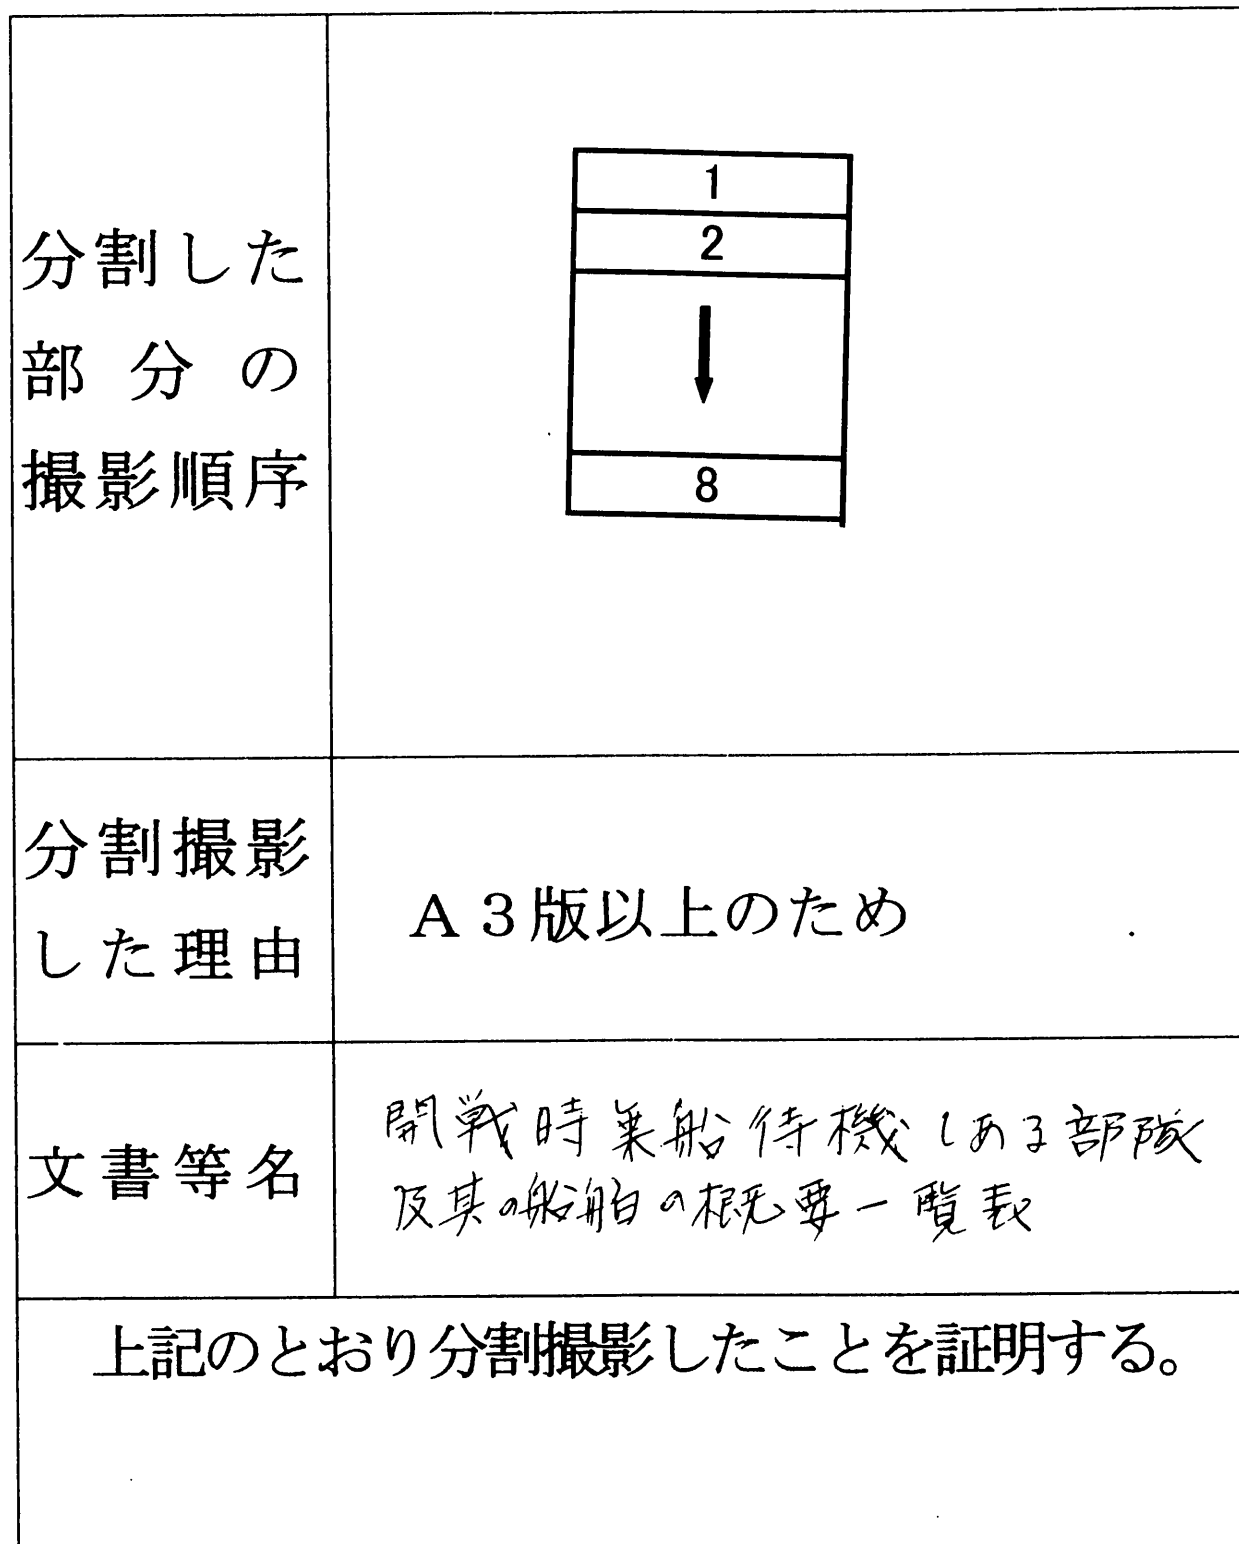 分割した
部分の
撮影順序
1
2
8
分割撮影
した理由
A3版以上のため
文書等名
開戦時乗船待機しある部隊
及其の船舶の概要一覧表
上記のとおり分割撮影したことを証明する。